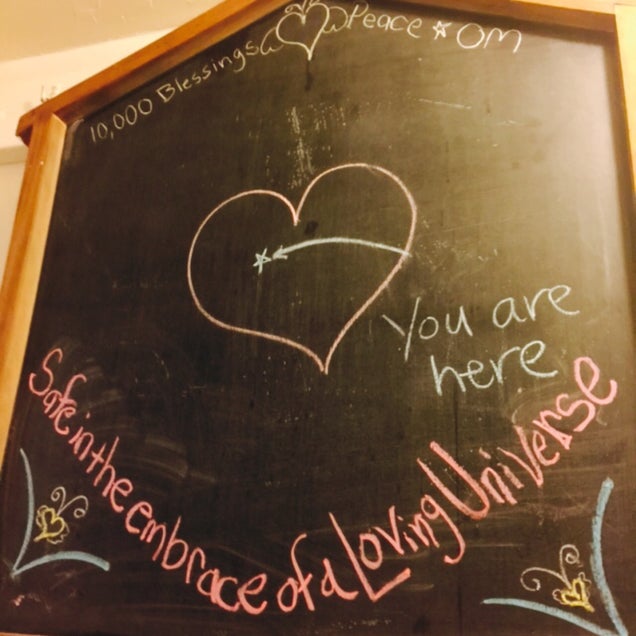 10,000 Blessings Peace * OM
You are
here
Safe in the embrace of a Loving Universe